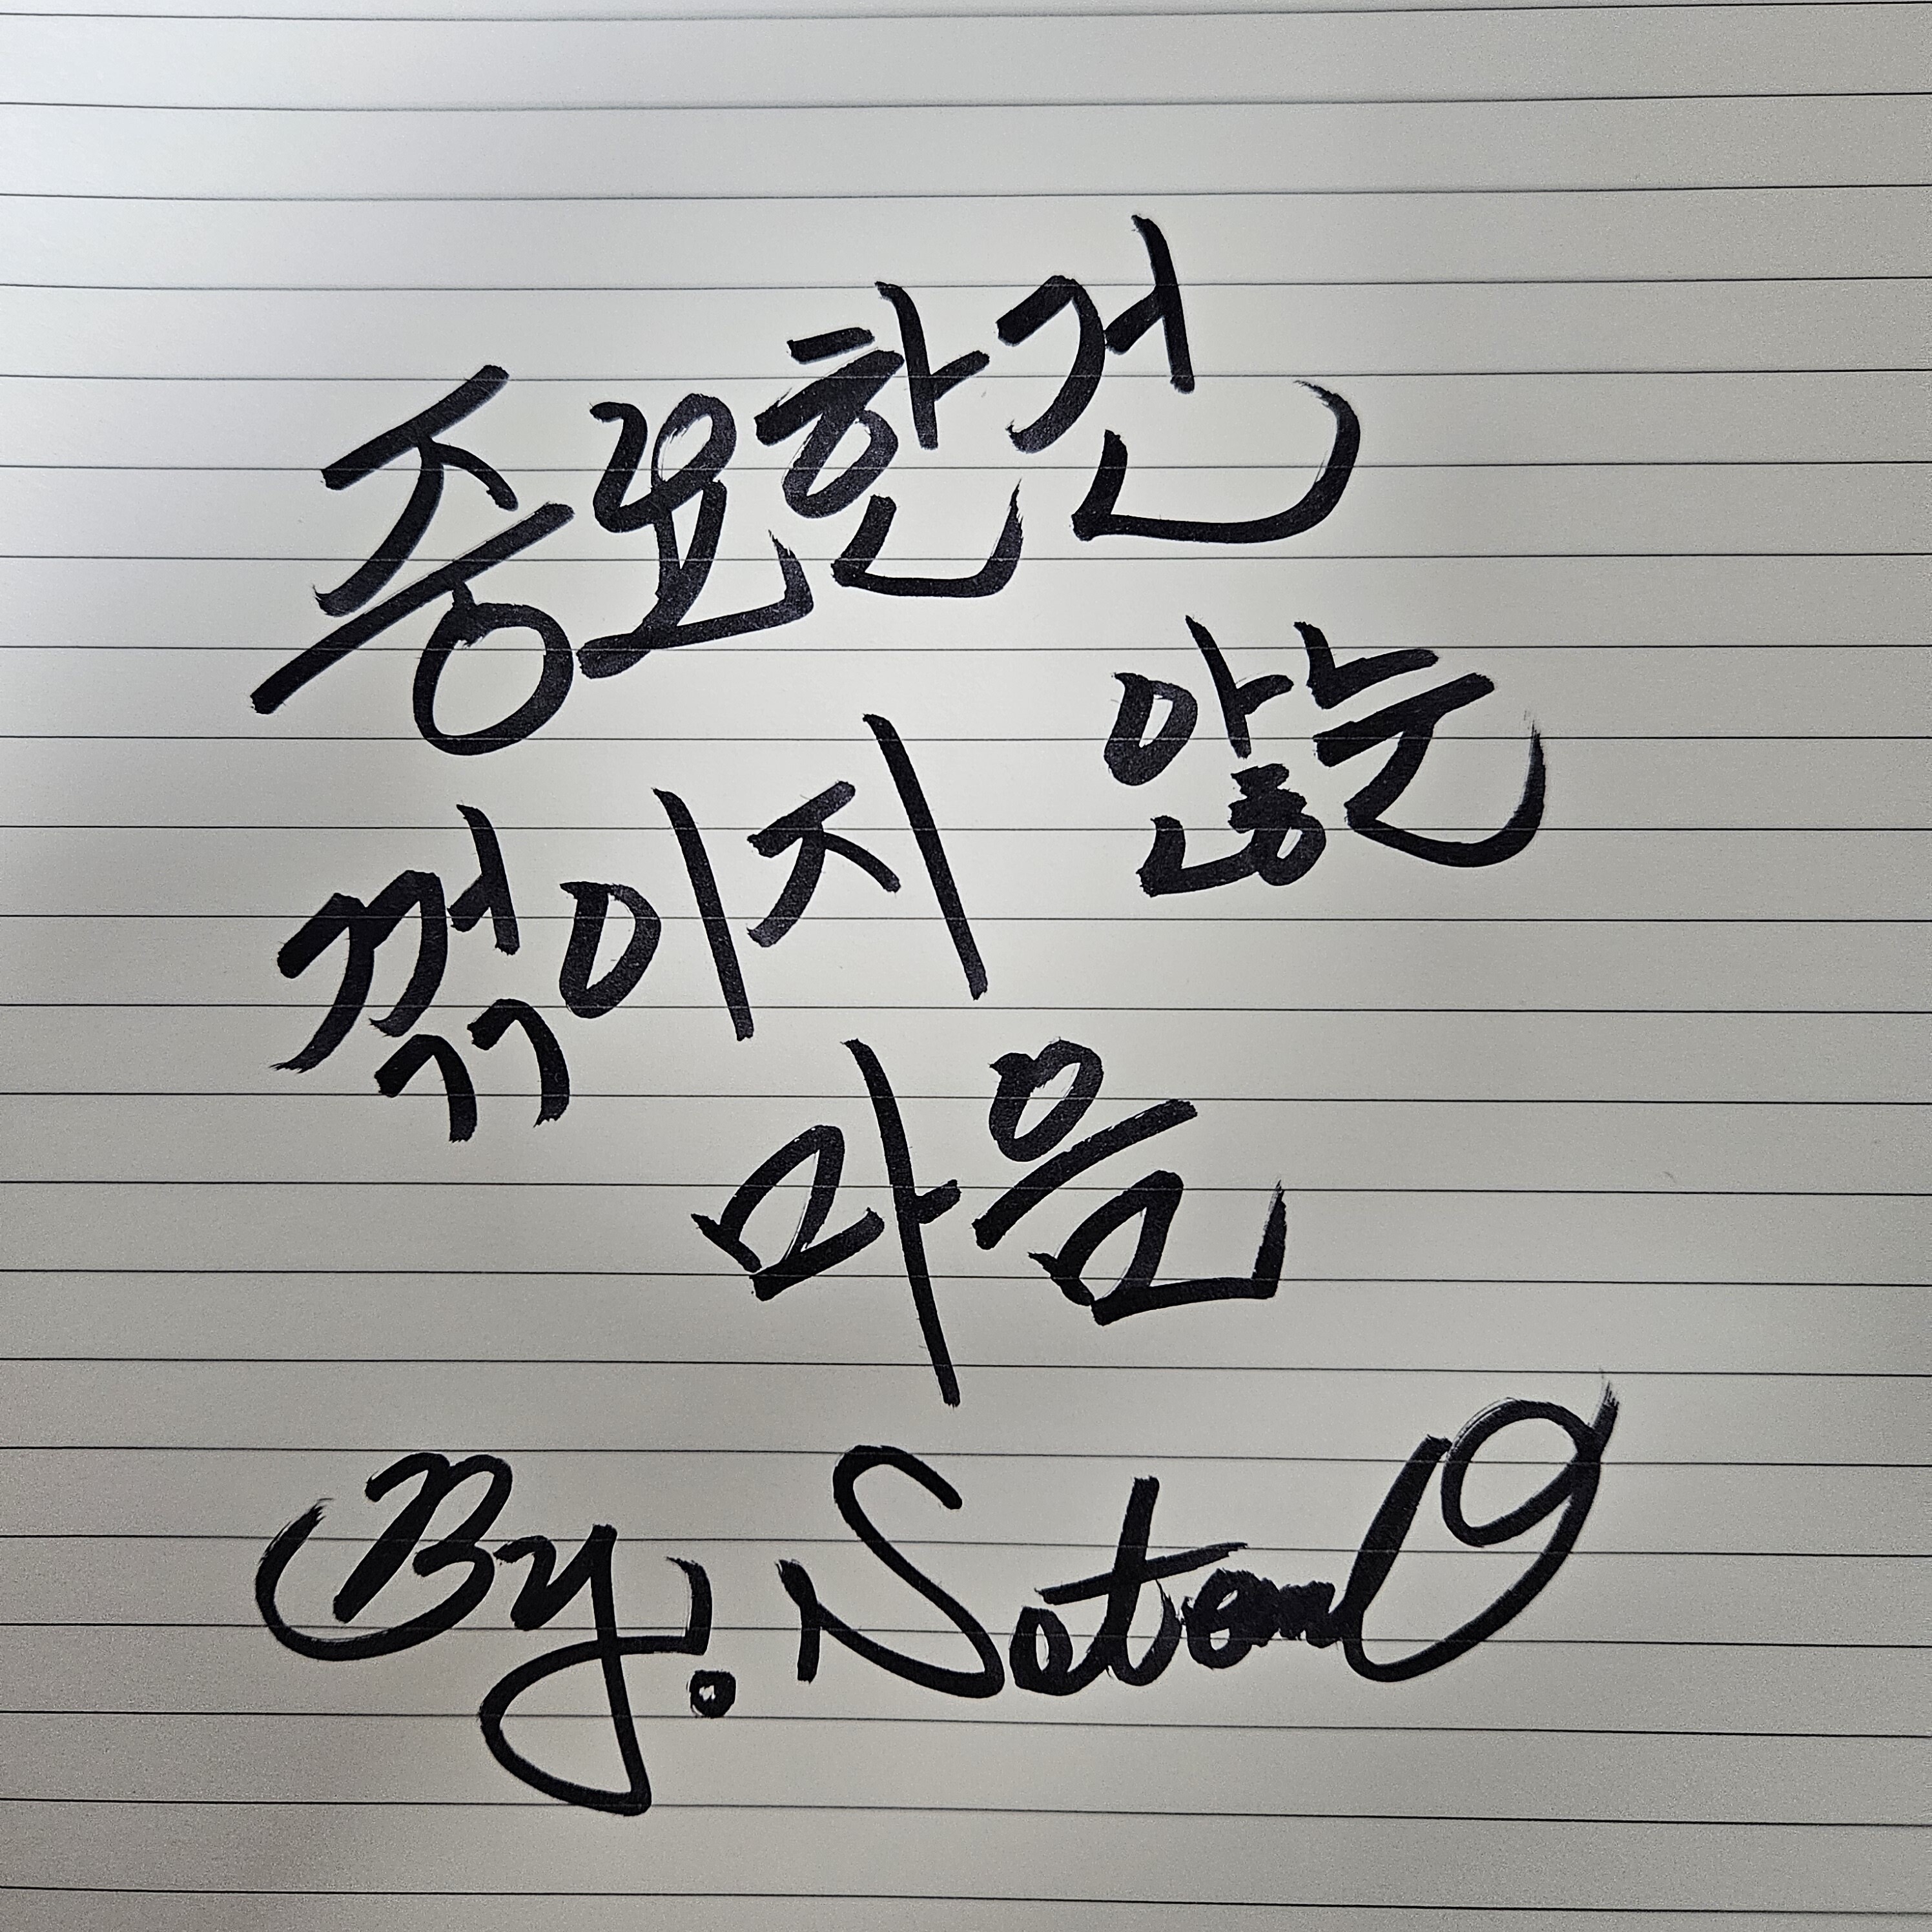 중요한건
꺾이지 않는
마음
By.